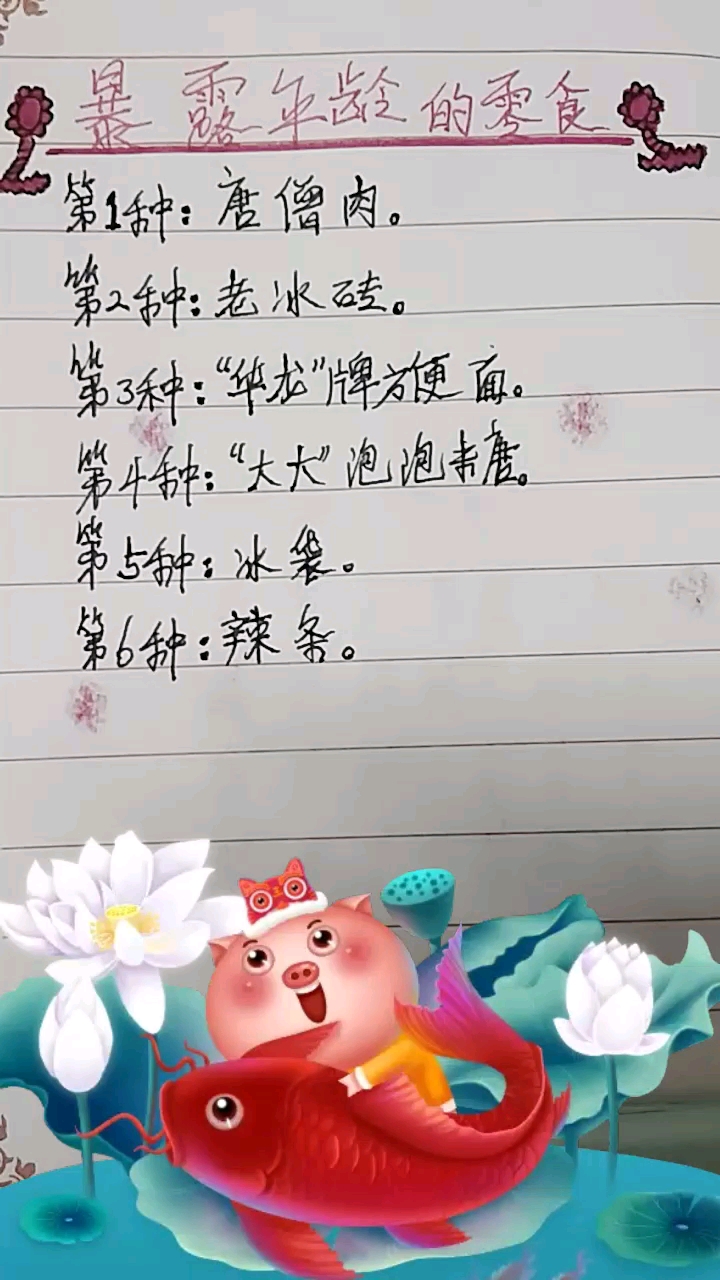 暴露年龄的零食
第1种：唐僧肉。
第2种：老冰砖。
第3种：“华龙”牌方便面。
第4种：“大大”泡泡糖。
第5种：冰袋。
第6种：辣条。